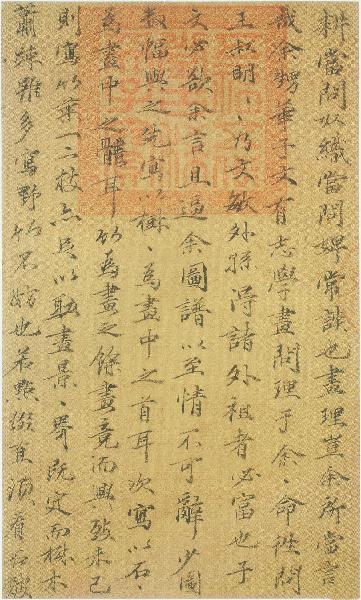 耕當問奴織當問婢常談也畫理豈余所當言
哉余甥華子文有志學畫問理于余〻命往問
王叔明〻〻乃文敏外孫得諸外祖者必富也子
文必欲余言且余圖譜以至情不可辭少圖
數幅與之先寫以樹〻為畫中之首耳次寫以石〻
為畫中之體耳竹為畫之餘畫竟而興致未已
則寫竹葉一二枝亦足以助畫景〻界既定而樹木
蕭疎雖多寫野竹不妨也若點綴須看